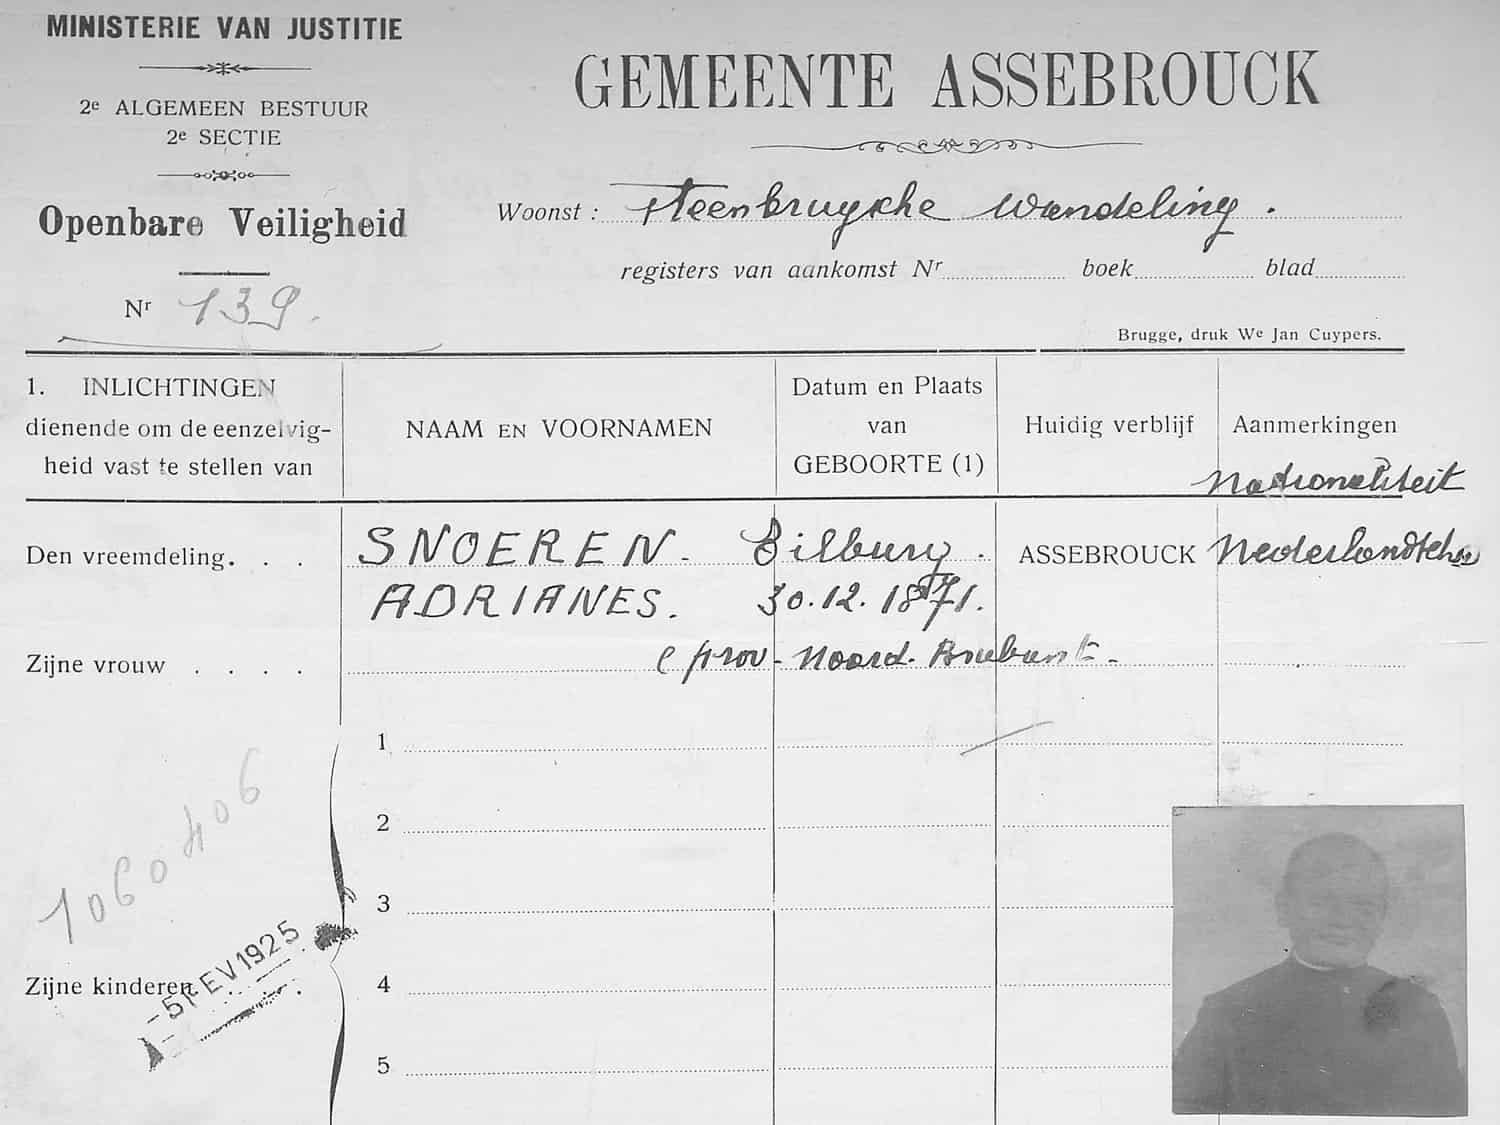 MINISTERIE VAN JUSTITIE
2e ALGEMEEN BESTUUR
2e SECTIE
Openbare Veiligheid
Nr 139.
GEMEENTE ASSEBROUCK
Woonst : Steenbrugsche wandeling.
registers van aankomst Nr boek blad
Brugge, druk We Jan Cuypers.
1. INLICHTINGEN
dienende om de eenzelvig-
heid vast te stellen van
NAAM EN VOORNAMEN
Datum en Plaats
van
GEBOORTE (1)
Huidig verblijf
Aanmerkingen
Nationaliteit
Den vreemdeling. . . SNOEREN. Tilburg. ASSEBROUCK Nederlandsche
ADRIANES. 30.12.1871.
Zijne vrouw . . . . prov. Noord. Brabant.
1
2
3
4
5
1060406
Zijne kinderen
-5 FEV 1925